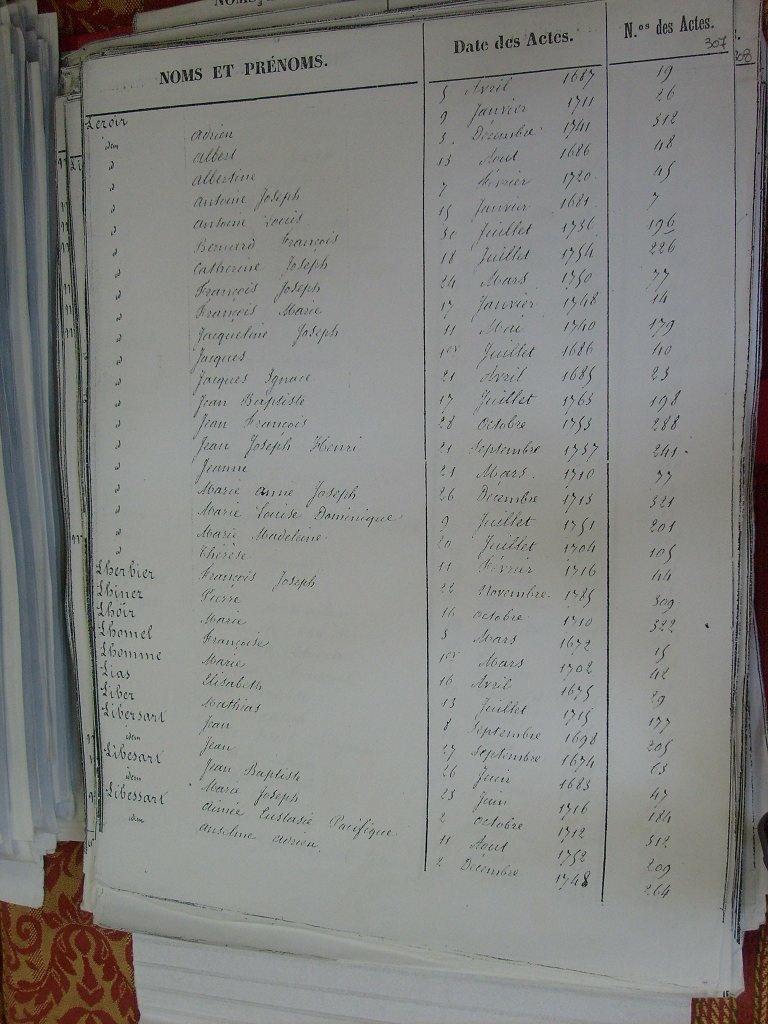 NOMS ET PRÉNOMS.
Leroir Adrien
idem Albert
d Albertine
d Antoine Joseph
d Antoine Louis
d Bernard François
d Catherine Joseph
d François Joseph
d François Marie
d Jacqueline Joseph
d Jacques
d Jacques Ignace
d Jean Baptiste
d Jean François
d Jean Joseph Henri
d Jeanne
d Marie Anne Joseph
d Marie Louise Dominique
d Marie Madeleine
d Thérèse
Lherbier François Joseph
Lhiner Pierre
Lhoir Marie
Lhomel Françoise
Lhomme Marie
Lias Elisabeth
Liber Mathias
Libersart Jean
idem Jean
Libesart Jean Baptiste
idem Marie Joseph
Libessart Aimée Eustasie Pacifique
idem Anseline Adrien
Date des Actes. N.os des Actes.
307
5 Avril 1687 19
9 Janvier 1711 26
5 Décembre 1741 312
13 Aout 1686 48
7 Février 1720 45
15 Janvier 1681 7
30 Juillet 1736 196
18 Juillet 1754 226
24 Mars 1750 77
17 Janvier 1748 14
11 Mai 1740 179
1er Juillet 1686 40
21 Avril 1685 23
17 Juillet 1763 198
28 Octobre 1753 288
21 Septembre 1737 241
21 Mars 1710 77
26 Décembre 1713 321
9 Juillet 1751 201
20 Juillet 1704 105
11 Février 1716 44
22 Novembre 1785 309
16 Octobre 1710 322
3 Mars 1672 15
1er Mars 1702 42
16 Avril 1675 29
13 Juillet 1715 177
8 Septembre 1698 205
27 Septembre 1674 63
26 Juin 1683 47
23 Juin 1716 184
2 Octobre 1712 312
11 Aout 1752 209
2 Décembre 1748 264